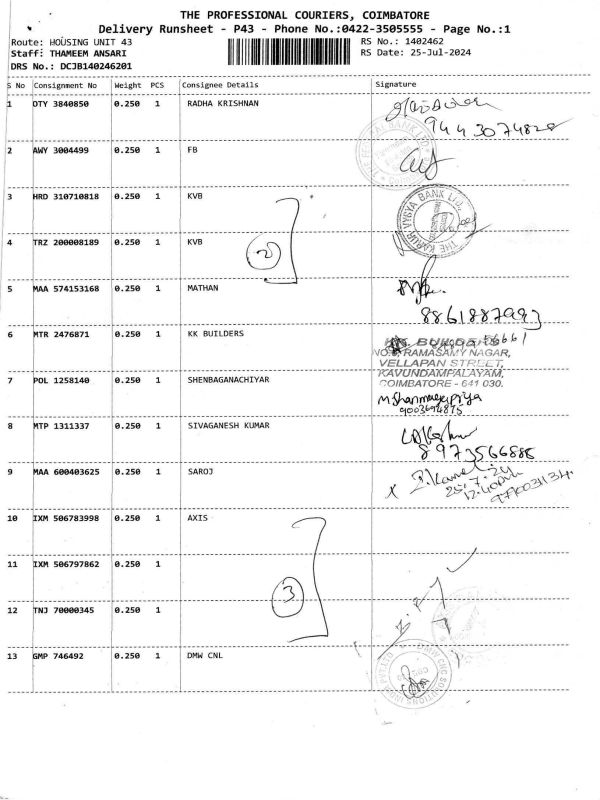 THE PROFESSIONAL COURIERS, COIMBATORE
Delivery Runsheet - P43 - Phone No.:0422-3505555 - Page No.:1
Route: HOUSING UNIT 43 RS No.: 1402462
Staff: THAMEEM ANSARI RS Date: 25-Jul-2024
DRS No.: DCJB140246201
S No Consignment No Weight PCS Consignee Details Signature
1 OTY 3840850 0.250 1 RADHA KRISHNAN
9443074828
2 AWY 3004499 0.250 1 FB
3 HRD 310710818 0.250 1 KVB
THE KARUR VYSYA BANK LTD.
2
4 TRZ 200008189 0.250 1 KVB
5 MAA 574153168 0.250 1 MATHAN
8861887993
6 MTR 2476871 0.250 1 KK BUILDERS
RAMASAMY NAGAR,
VELLAPAN STREET,
KAVUNDAMPALAYAM,
COIMBATORE - 641 030.
7 POL 1258140 0.250 1 SHENBAGANACHIYAR
8 MTP 1311337 0.250 1 SIVAGANESH KUMAR
8973566886
9 MAA 600403625 0.250 1 SAROJ
25.7.24
10 IXM 506783998 0.250 1 AXIS
11 IXM 506797862 0.250 1
3
12 TNJ 70000345 0.250 1
13 GMP 746492 0.250 1 DMW CNL
DMW CNC SOLUTIONS INDIA PVT LTD